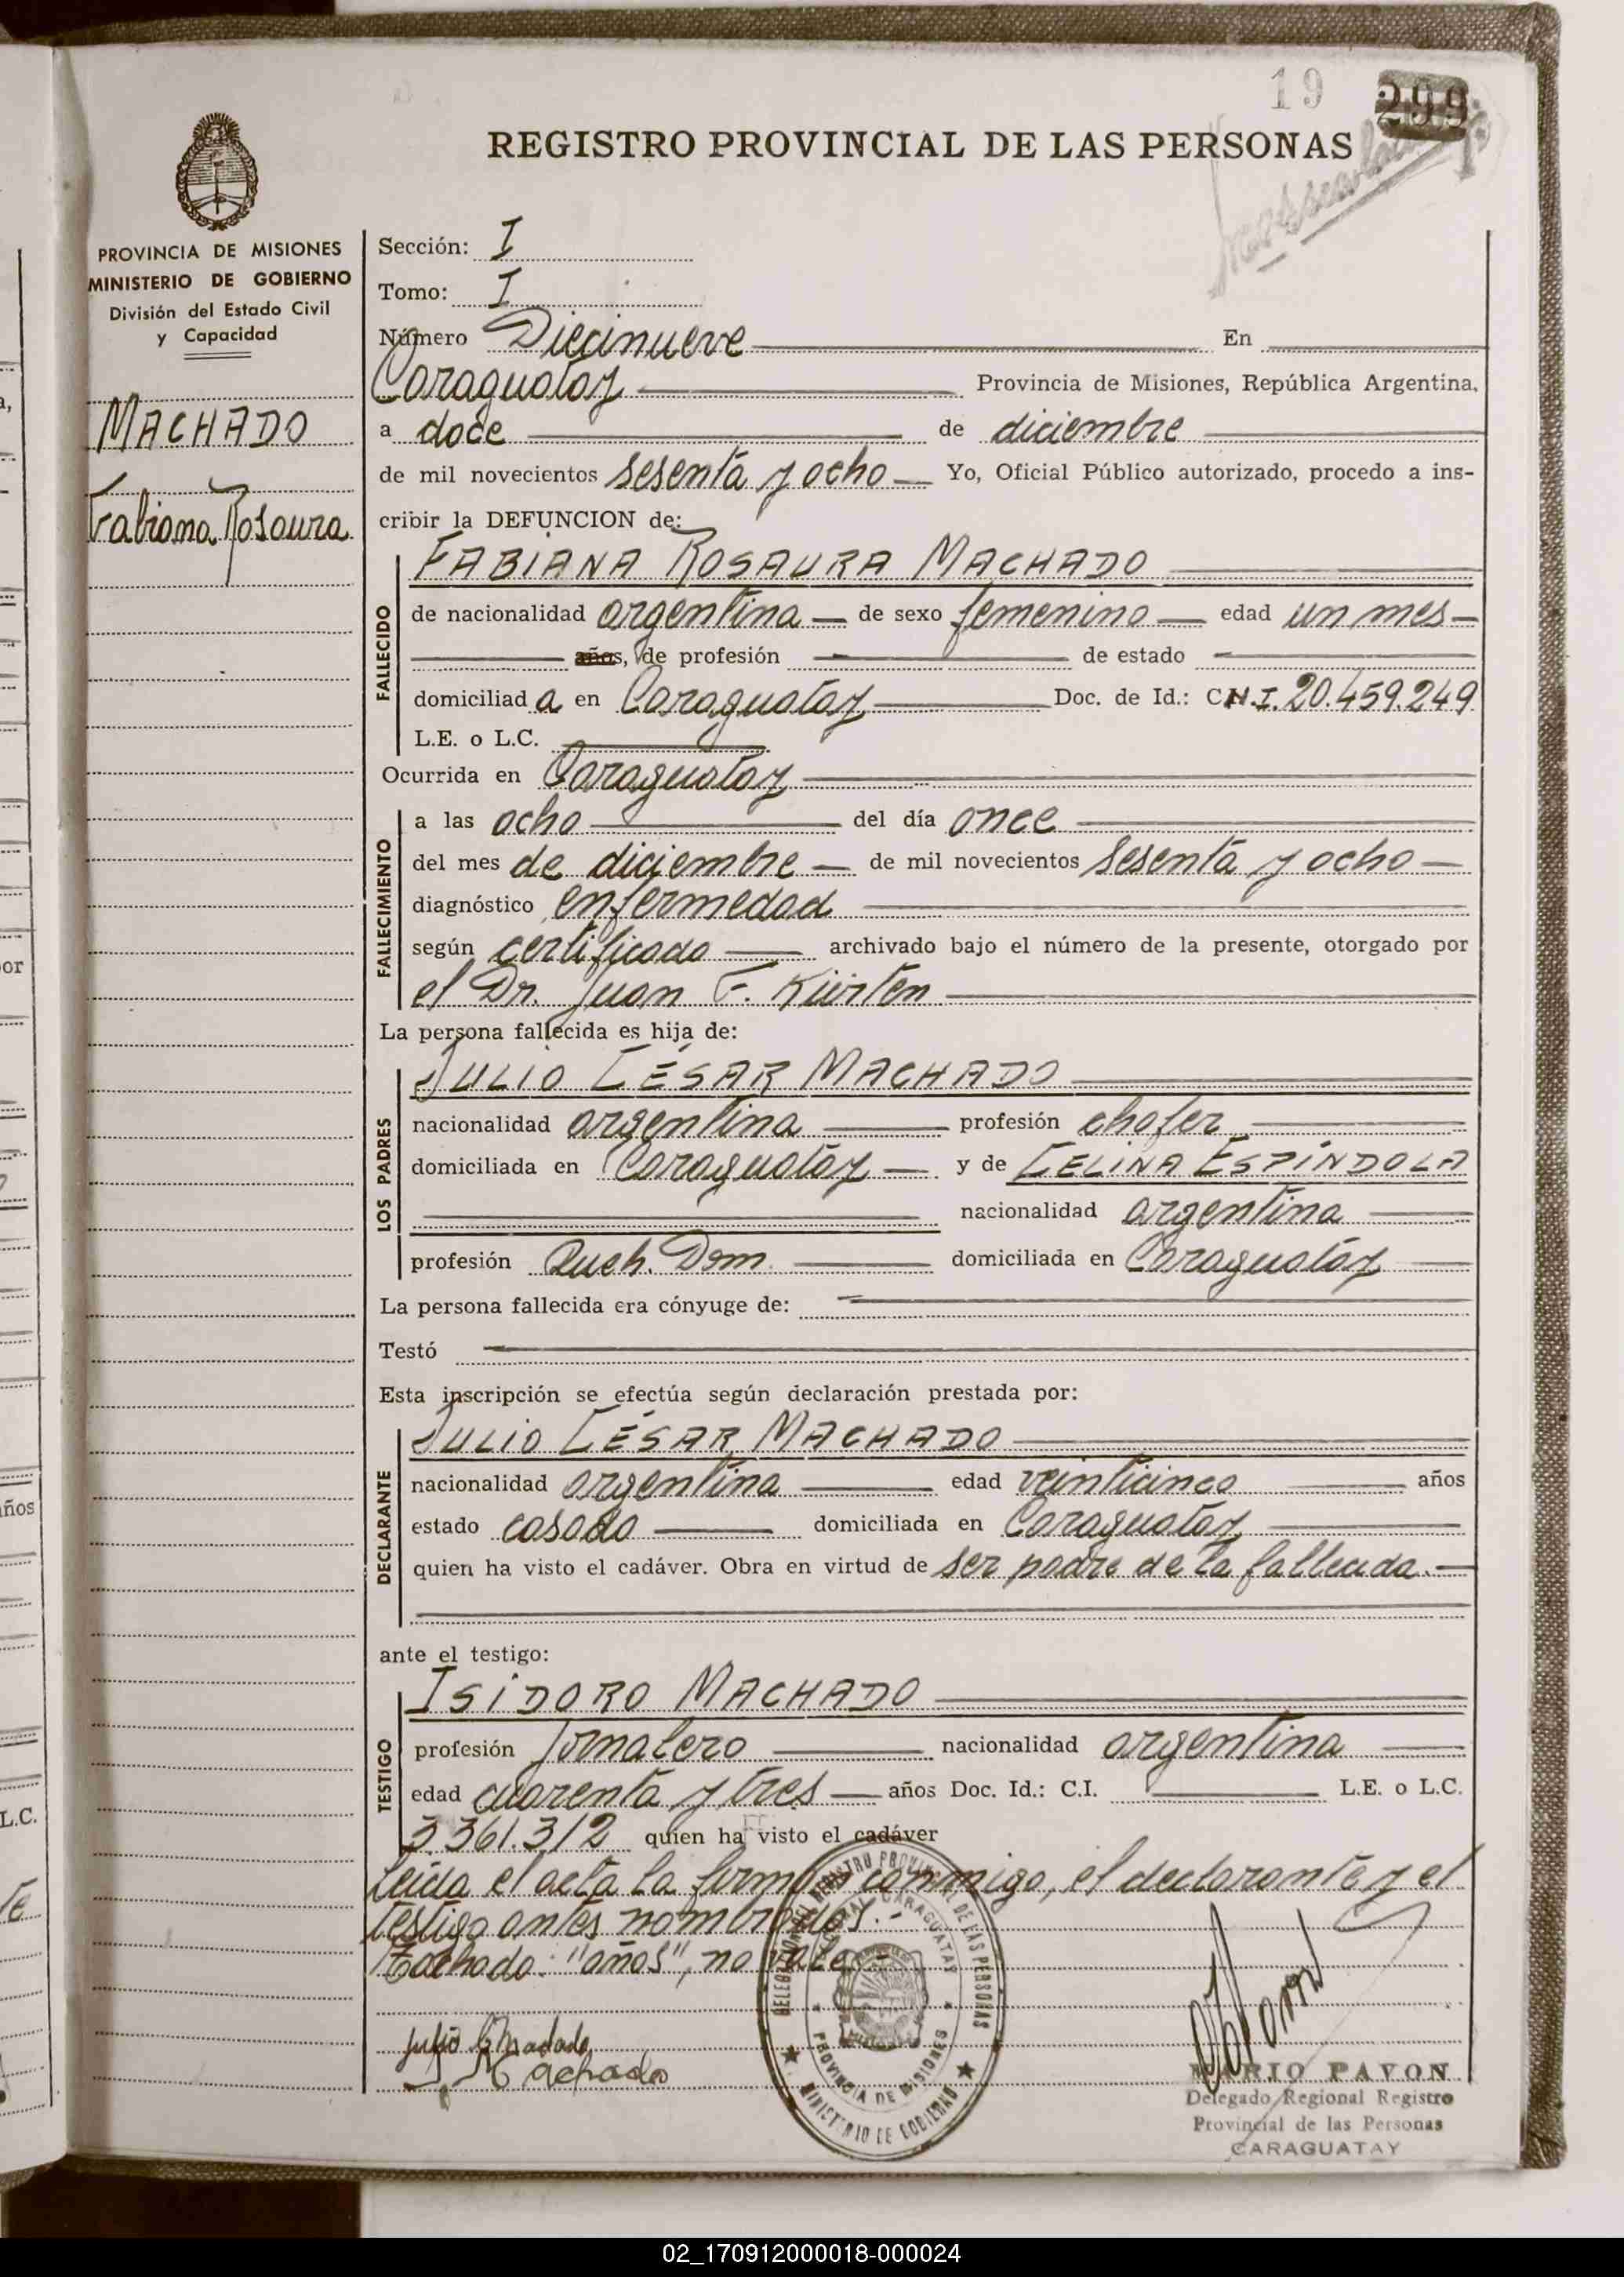 19 299
REGISTRO PROVINCIAL DE LAS PERSONAS
PROVINCIA DE MISIONES
MINISTERIO DE GOBIERNO
División del Estado Civil
y Capacidad
MACHADO
Fabiana Rosaura
Sección: I
Tomo: I
Número Diecinueve En
Caraguatay Provincia de Misiones, República Argentina,
a doce de diciembre
de mil novecientos sesenta y ocho Yo, Oficial Público autorizado, procedo a ins-
cribir la DEFUNCION de:
FALLECIDO
FABIANA ROSAURA MACHADO
de nacionalidad argentina de sexo femenino edad un mes
años, de profesión de estado
domiciliad a en Caraguatay Doc. de Id.: C.N.I. 20.459.249
L.E. o L.C.
Ocurrida en Caraguatay
FALLECIMIENTO
a las ocho del día once
del mes de diciembre de mil novecientos sesenta y ocho
diagnóstico enfermedad
según certificado archivado bajo el número de la presente, otorgado por
el Dr. Juan F. Kürten
La persona fallecida es hija de:
LOS PADRES
JULIO CÉSAR MACHADO
nacionalidad argentina profesión chofer
domiciliada en Caraguatay y de CELINA ESPÍNDOLA
nacionalidad argentina
profesión Queh. Dom. domiciliada en Caraguatay
La persona fallecida era cónyuge de:
Testó
Esta inscripción se efectúa según declaración prestada por:
DECLARANTE
JULIO CÉSAR MACHADO
nacionalidad argentina edad veinticinco años
estado casado domiciliada en Caraguatay
quien ha visto el cadáver. Obra en virtud de ser padre de la fallecida.
ante el testigo:
TESTIGO
ISIDORO MACHADO
profesión Jornalero nacionalidad argentina
edad cuarenta y tres años Doc. Id.: C.I. L.E. o L.C.
3.361.312 quien ha visto el cadáver
Leída el acta la firman conmigo, el declarante y el
testigo antes nombrados.-
Tachado: "años", no vale.-
Julio C Machado
I. Machado
DELEGACION DEL REGISTRO PROVINCIAL DE LAS PERSONAS
CARAGUATAY
PROVINCIA DE MISIONES
MINISTERIO DE GOBIERNO
MARIO PAVON
Delegado Regional Registro
Provincial de las Personas
CARAGUATAY
02_170912000018-000024